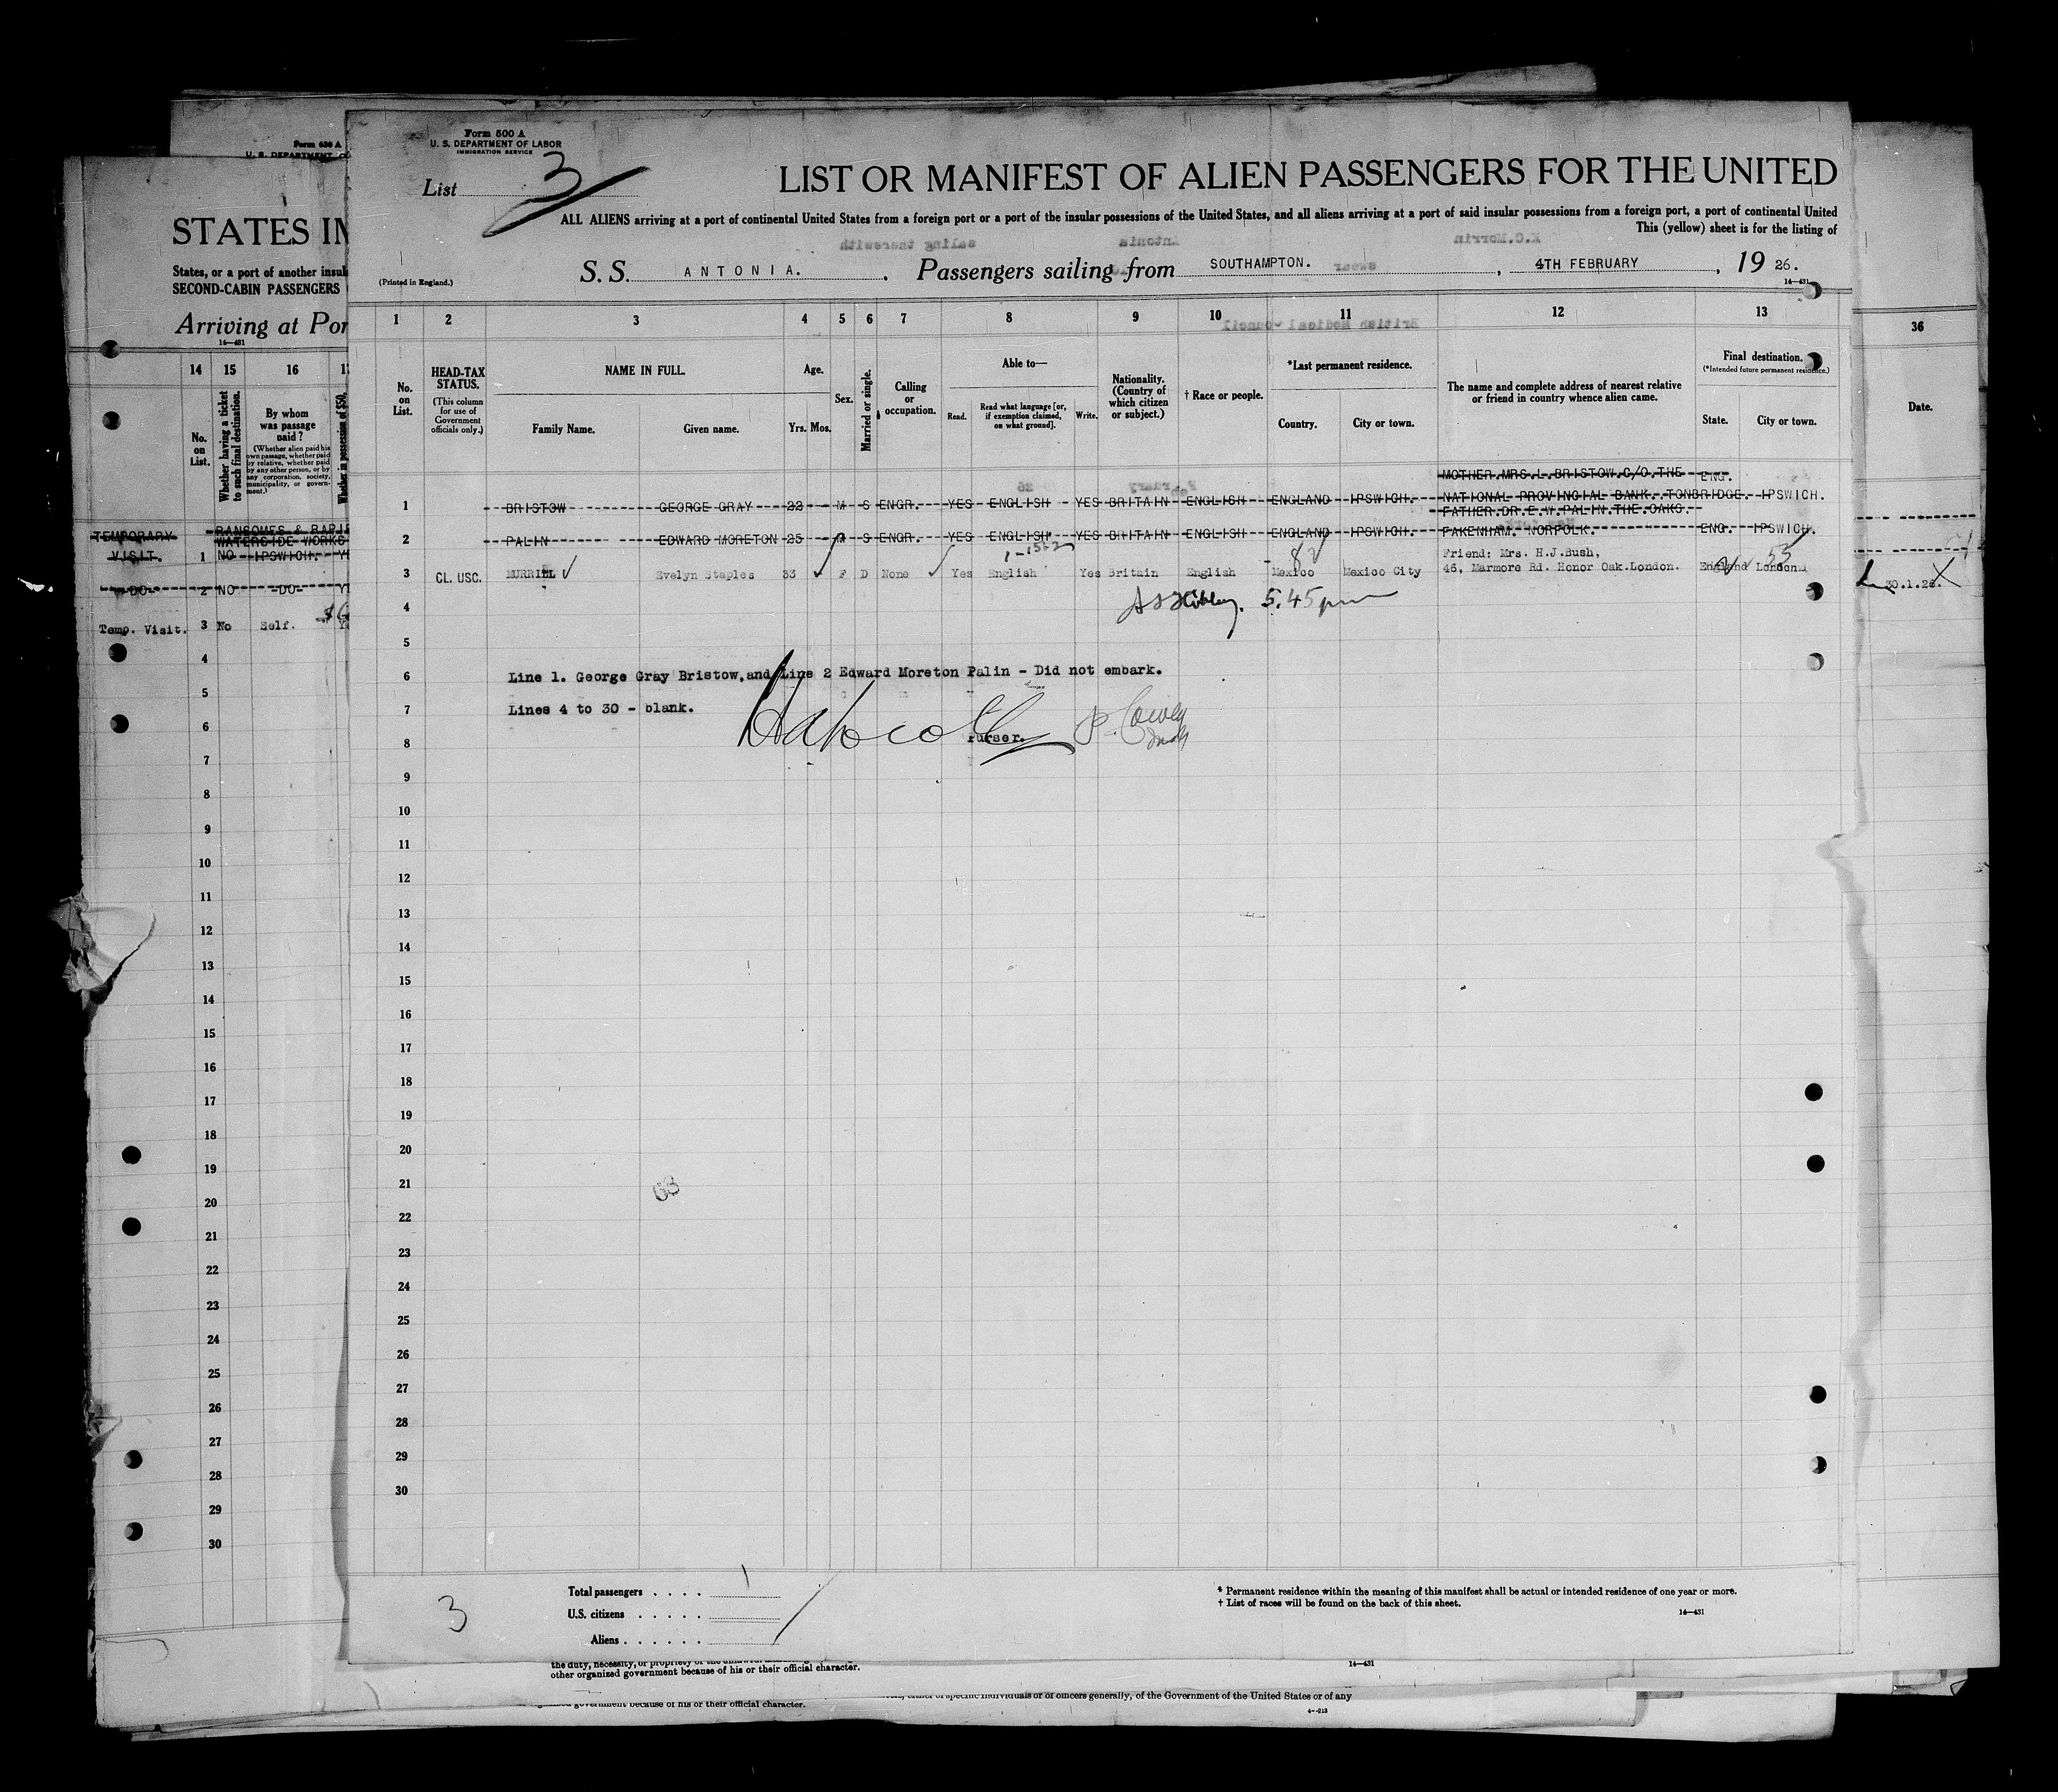 Form 500 A
U. S. DEPARTMENT OF LABOR
IMMIGRATION SERVICE
List 3
LIST OR MANIFEST OF ALIEN PASSENGERS FOR THE UNITED
ALL ALIENS arriving at a port of continental United States from a foreign port or a port of the insular possessions of the United States, and all aliens arriving at a port of said insular possessions from a foreign port, a port of continental United
This (yellow) sheet is for the listing of
(Printed in England.)
S. S. ANTONIA. Passengers sailing from SOUTHAMPTON. , 4TH FEBRUARY , 19 26.
14—431
1 2 3 4 5 6 7 8 9 10 11 12 13
No. on List.
HEAD-TAX STATUS.
(This column for use of Government officials only.)
NAME IN FULL.
Family Name. Given name.
Age.
Yrs. Mos.
Sex.
Married or single.
Calling or occupation.
Able to—
Read. Read what language [or, if exemption claimed, on what ground]. Write.
Nationality. (Country of which citizen or subject.)
† Race or people.
*Last permanent residence.
Country. City or town.
The name and complete address of nearest relative or friend in country whence alien came.
Final destination.
(*Intended future permanent residence.)
State. City or town.
MOTHER.MRS.L.BRISTOW.C/O.THE ENG.
1 BRISTOW GEORGE GRAY 22 M S ENGR. YES ENGLISH YES BRITAIN ENGLISH ENGLAND IPSWICH. NATIONAL PROVINCIAL BANK. TONBRIDGE. IPSWICH.
FATHER.DR.E.W.PALIN.THE OAKS.
2 PALIN EDWARD MORETON 25 S ENGR. YES ENGLISH YES BRITAIN ENGLISH ENGLAND IPSWICH. FAKENHAM. NORFOLK. ENG. IPSWICH.
Friend: Mrs. H.J.Bush,
3 CL. USC. Evelyn Staples 33 F D None Yes English Yes Britain English Mexico Mexico City 46, Marmore Rd. Honor Oak.London. England London
4 5.45 pm
5
6 Line 1. George Gray Bristow,and Line 2 Edward Moreton Palin - Did not embark.
7 Lines 4 to 30 - blank.
8 Purser.
9
10
11
12
13
14
15
16
17
18
19
20
21
22
23
24
25
26
27
28
29
30
63
3
Total passengers . . . . 1
U.S. citizens . . . . .
Aliens . . . . . .
* Permanent residence within the meaning of this manifest shall be actual or intended residence of one year or more.
† List of races will be found on the back of this sheet.
14—431
Form 630 A
STATES IN
States, or a port of another insul
SECOND-CABIN PASSENGERS
Arriving at Por
14—431
14 15 16
No. on List.
Whether having a ticket to such final destination.
By whom was passage paid?
(Whether alien paid his own passage, whether paid by relative, whether paid by any other person, or by any corporation, society, municipality, or government.)
Whether in possession of $50,
TEMPORARY RANSOMES & RAPIE
WATERSIDE WORKS
VISIT. 1 NO IPSWICH.
-DO- 2 NO -DO-
Temp. Visit. 3 No Self.
4
5
6
7
8
9
10
11
12
13
14
15
16
17
18
19
20
21
22
23
24
25
26
27
28
29
30
36
Date.
30.1.26.
other organized government because of his or their official character.
14—431
government because of his or their official character.
individuals or of officers generally, of the Government of the United States or of any